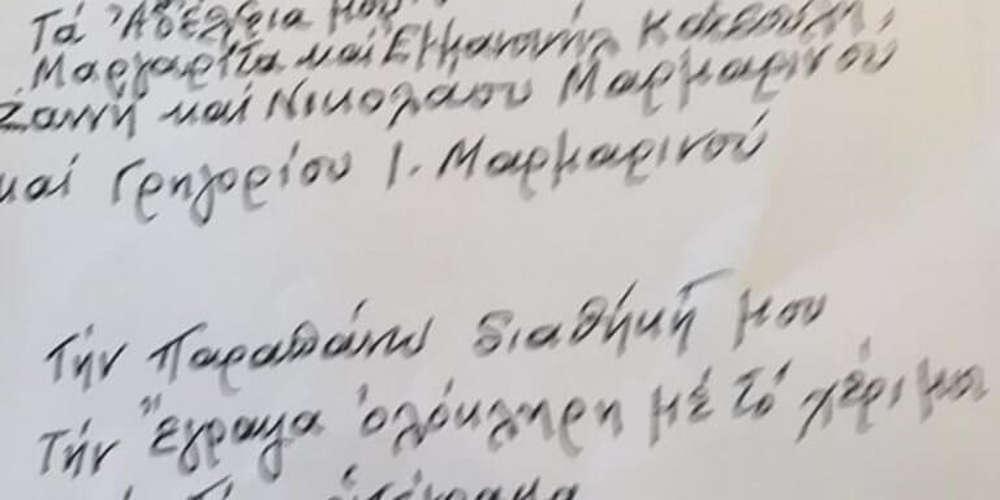 Τά Ἀδέλφια μου
Μαργαρίτα καί Ἐμμανουήλ
Ζαννή καί Νικολάου Μαρμαρινού
καί Γρηγορίου Ι. Μαρμαρινού
Τήν Παραπάνω διαθήκη μου
Τήν ἔγραψα ὁλόκληρη μέ τό χέρι μου